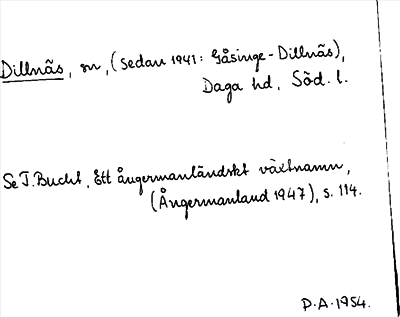 Dillnäs, sn, (sedan 1941: Gåsinge-Dillnäs),
Daga hd, Söd. l.
Se T. Bucht, Ett ångermanländskt växtnamn,
(Ångermanland 1947), s. 114.
P.A. 1954.